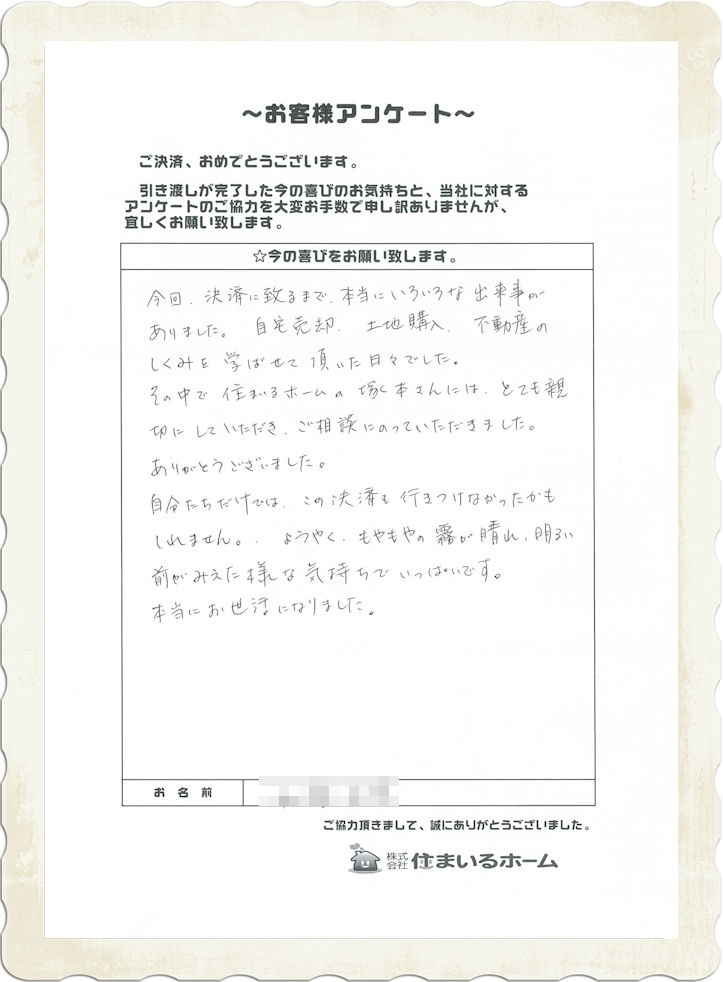 ～お客様アンケート～
ご決済、おめでとうございます。
引き渡しが完了した今の喜びのお気持ちと、当社に対する
アンケートのご協力を大変お手数で申し訳ありませんが、
宜しくお願い致します。
☆今の喜びをお願い致します。
今回、決済に致るまで、本当にいろいろな出来事が
ありました。 自宅売却、土地購入、不動産の
しくみを学ばせて頂いた日々でした。
その中で住まいるホームの塚本さんには、とても親
切にしていただき、ご相談にのっていただきました。
ありがとうございました。
自分たちだけでは、この決済も行きつけなかったかも
しれません。. ようやく、もやもやの霧が晴れ、明るい
前がみえた様な気持ちでいっぱいです。
本当にお世話になりました。
お名前
ご協力頂きまして、誠にありがとうございました。
株式会社 住まいるホーム